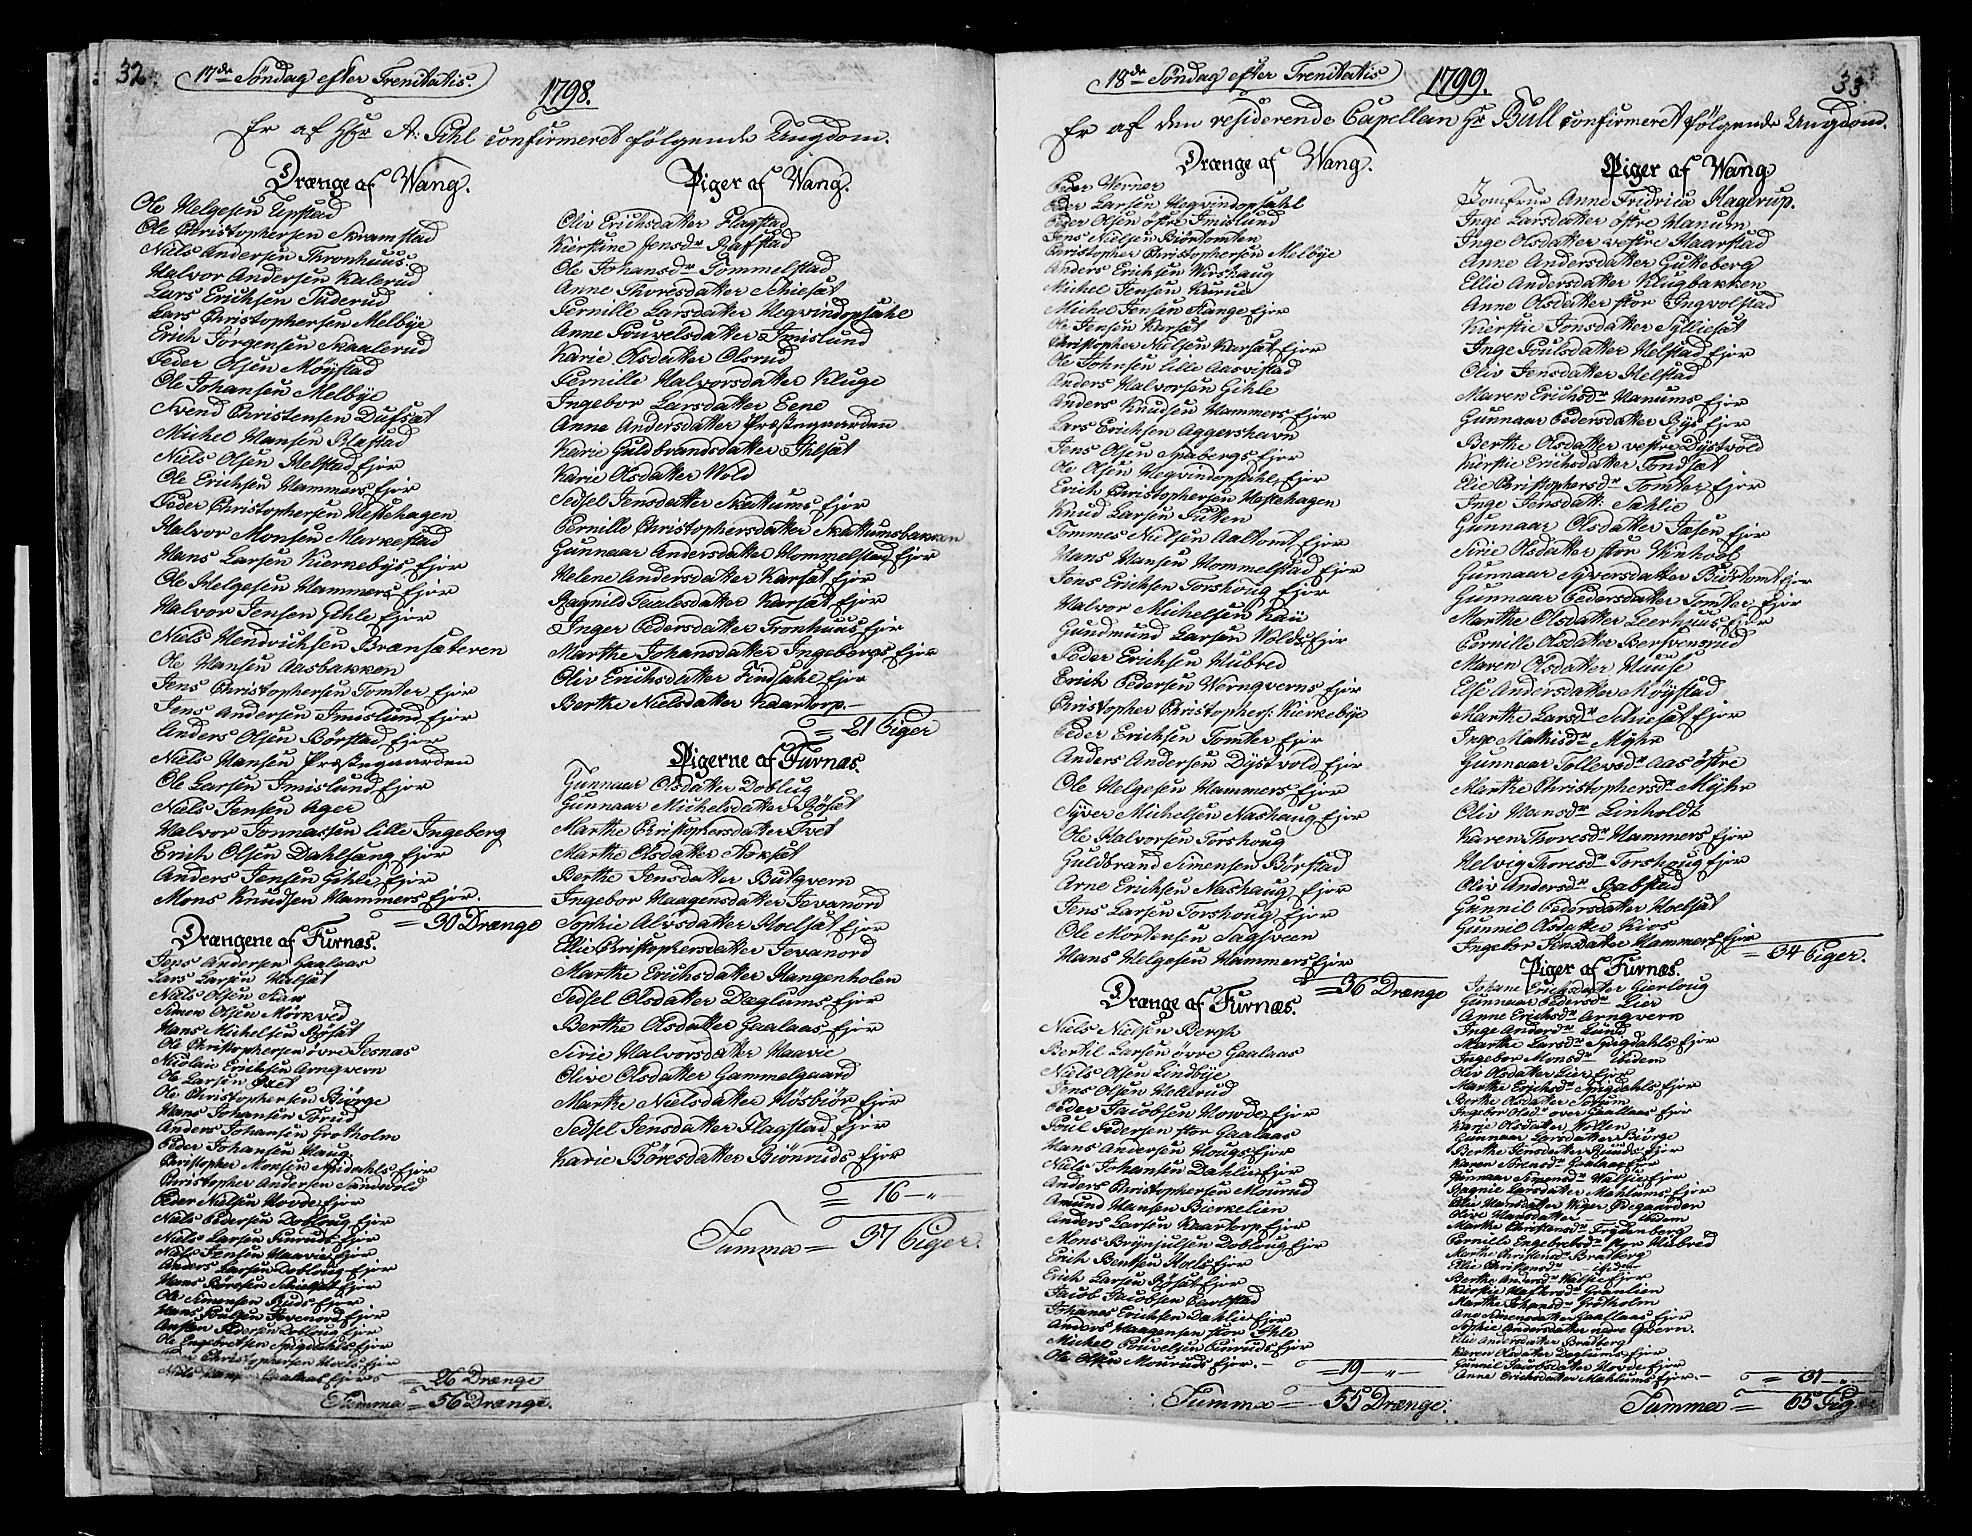 32.
17de Søndag efter Trenitatis.
1798.
Er af Hr A: Pihl confirmeret følgende Ungdom.
Drænge af Wang.
Ole Helgesen Upstad
Ole Christophersen Skramstad
Niels Andersen Thronhuus
Halvor Andersen Kalerud
Lars Erichsen Suderud
Lars Christophersen Melbye
Erich Jørgensen Skaalerud
Peder Olsen Möystad
Ole Johansen Melbye
Svend Christensen Dufset
Michel Hansen Blæstad
Niels Olsen Helstad Ejer
Ole Erichsen Hammers Ejer
Peder Christophersen Hestehagen
Halvor Monsen Markestad
Hans Larsen Kiernebys Ejer
Ole Helgesen Hammers Ejer
Halvor Jensen Gihle Ejer
Niels Hendrichsen Brænsæteren
Ole Hansen Aasbakken
Jens Christophersen Tomter Ejer
Jens Andersen Imislund Ejer
Anders Olsen Börstad Ejer
Niels Hansen Præstegaarden
Ole Larsen Imislund Ejer
Niels Jensen Ager
Halvor Jonnassen lille Ingeberg
Erich Olsen Dahlseng Ejer
Anders Jensen Gihle Ejer
Mons Knudsen Hammers Ejer.
= 30 Drænge
Drængene af Furnæs.
Jens Andersen Gaalaas
Lars Larsen Halset
Niels Olsen
Simen Olsen Mörkved
Hans Michelsen Bøsæt
Ole Christophersen övre Jesnæs
Nicolai Erichsen Arnqvern
Ole Larsen
Ole Christophersen Biörge
Hans Johansen
Anders Johansen Grotholm
Peder Johansen Haug
Christopher Monsen Spidahls Ejer
Christopher Andersen Sandvold
Peder Nielsen Hovde Ejer
Niels Pedersen Dobloug Ejer
Niels Larsen Ejer
Niels Jensen Haavie Ejer
Anders Larsen Dobloug Ejer
Hans Ejer
Ole Simensen Ruds Ejer
Hans Poulsen Jevenord Ejer
Pedersen Dobloug Ejer
Ole Engebretsen Spigdahls Ejer
Christophersen Hoels Ejer
Niels Gaalaas Ejer
= 26 Drænge
Summa = 56 Drænge.
Piger af Wang.
Oliv Erichsdatter Flagstad
Kierstine Jensdr Bafstad
Ole Johansdr Tommelstad
Anne Thoresdatter Schieset
Pernille Larsdatter Hegvindopsahl
Anne Pouvelsdatter Imislund
Karie Olsdatter Olsrud
Pernille Halvorsdatter Kluge
Ingebor Larsdatter Eene
Anne Andersdatter Præstegaarden
Karie Guldbrandsdatter Ihlset
Karie Olsdatter Wold
Sedsel Jensdatter Skattums Ejer
Pernille Christophersdatter Skattumsbakken
Gunnaar Andersdatter Hommelstad Ejer
Helene Andersdatter Karset Ejer
Ragnild Karset Ejer
Inger Pedersdatter Tronhuus Ejer
Marthe Johansdatter Ingebergs Ejer
Oliv Erichsdatter Findsahl Ejer
Berthe Nielsdatter Kaartorp.
= 21 Piger
Pigerne af Furnæs.
Gunnaar Olsdatter Doblug
Gunnaar Michelsdatter Bøsæt
Marthe Christophersdatter Tvet
Marthe Olsdatter Stokset
Berthe Jensdatter Butqvern
Ingebor Haagensdatter Jevanord
Sophie Alvsdatter Hoelset Ejer
Ellie Christophersdatter Jevanord
Marthe Erichsdatter Stangenholen
Sedsel Olsdatter Dæglums Ejer
Berthe Olsdatter Gaalaas Ejer
Sirie Halvorsdatter Haavie
Olive Olsdatter Gammelgaard
Marthe Nielsdatter Hösbiör Ejer
Sedsel Jensdatter Flagstad Ejer
Karie Børesdatter Biönruds Ejer
= 16 - "
Summa = 37 Piger.
33.
18de Søndag efter Trenitatis
1799.
Er af den residerende Capellan Hr Bull confirmeret følgende Ungdom.
Drænge af Wang.
Peder Werner
Peder Larsen Hegvindopsahl
Peder Olsen östre Imislund
Jens Nielsen Biörtomten
Christopher Christophersen Melbye
Anders Erichsen Wirshaug
Michel Jensen Kurud
Michel Jensen Stange Ejer
Ole Jensen Karset
Christopher Nielsen Karset Ejer
Ole Johnsen lille Aasvistad
Anders Halvorsen Gihle
Anders Knudsen Hammers Ejer
Lars Erichsen Aggershavn
Jens Olsen Spabergs Ejer
Ole Olsen Hegvindopsahl Ejer
Erich Christophersen Hestehagen
Knud Larsen Futen
Tommes Nielsen Aaltomt Ejer
Hans Hansen Hommelstad Ejer
Jens Erichsen Torshoug Ejer
Halvor Michelsen Kaü
Gundmund Larsen Wolds Ejer
Peder Erichsen Hubred
Erich Pedersen Wernqverns Ejer
Christopher Christophers: Kierkebÿe
Peder Erichsen Tomter Ejer
Anders Andersen Dystvold Ejer
Ole Helgesen Hammers Ejer
Syver Michelsen Nashaug Ejer
Ole Halvorsen Torshoug
Guldbrand Simensen Börstad
Arne Erichsen Nashaug Ejer
Jens Larsen Torshoug Ejer
Ole Mortensen Sagsveen
Hans Helgesen Hammers Ejer
= 36 Drænge
Drænge af Furnæs.
Niels Nielsen Bergh
Bertil Larsen övre Gaalaas
Niels Olsen Lindbye
Jens Olsen Hellerud
Peder Jacobsen Howde Ejer
Poul Pedersen stor Gaalaas
Hans Andersen Hougs Ejer
Niels Johansen Dahlie Ejer
Anders Christophersen Mourud
Amund Hansen Bierkelien
Anders Larsen Kaartorp Ejer
Mons Brynjulsen Dobloug Ejer
Erich Bentsen Hoels Ejer
Erich Larsen Bøsæt Ejer
Jacob Jacobsen Carlstad
Johanes Erichsen Dahlie Ejer
Anders Haagensen stor Ihle
Michel Pouvelsen Ejer
Ole Olsen Mouruds Ejer.
= 19 - "
Summa = 55 Drænge.
Piger af Wang
Jomfrue Anne Fridrica Hagerup.
Inge Larsdatter östre Hanum
Inge Olsdatter vestre Haarstad
Anne Andersdatter Gutteberg
Ellie Andersdatter Klugbakken
Anne Olsdatter stor Ingvolstad
Kierstie Jonsdatter Sylliesæt
Inge Poulsdatter Helstad Ejer
Oliv Jensdatter Helstad
Maren Erichsdr Hanums Ejer
Gunnaar Pedersdatter Bys Ejer
Berthe Olsdatter vestre Dystvold
Kierstie Erichsdatter Tondset
Elie Christophersdr Tomter Ejer
Inge Jensdatt: Sahlie
Gunnaar Olsdatter Ejer
Sirie Olsdatter stor Windhoel
Gunnaar Syversdatter Biörtomt Ejer
Gunnaar Pedersdatter Tomter Ejer
Marthe Olsdatter Leerhuus Ejer
Pernille Olsdatter Bersvensrud
Maren Olsdatter Huuse
Else Andersdatter Möystad
Marthe Larsdr Schieset Ejer
Inge Mathisdr Myhr
Gunnaar Tollevsdr Aas östre
Marthe Christophersdr Myhr
Oliv Hansdr Linholdt
Karen Thoresdr Hammers Ejer
Helvig Thoresdr Torshoug Ejer
Oliv Andersdr Babstad
Gunnil Pedersdatter Hoelset
Gunnil Olsdatter Kios
Ingebor Jensdatter Hammers Ejer
= 34 Piger.
Piger af Furnæs.
Johane Erichsdatter Gierloug
Gunnaar Pedersdr Lier
Anne Erichsdr Arnqvern
Inge Andersdr Lund
Marthe Larsdr Spigdahls Ejer
Ingebor Monsdr ibidem
Oliv Olsdatter Lier Ejer
Marthe Erichsdr Spigdahls Ejer
Berthe Olsdatter
Ingebor Olsdr over Gaallaas Ejer
Karie Olsdatter Hollen
Gunnaar Larsdatter Biörge
Berthe Jensdatter Ejer
Karen Gaalaas Ejer
Gunnaar Simensdr Halsie Ejer
Larsdatter Mahlums Ejer
Ellie Hansdatter Wiger Ödegaarden
Olive Hansdatter - ibidem
Marthe Christensdr Frydenberg
Pernille Engebretsdr Hubred
Marthe Christensdr Bradberg
Elie Christensdr - ibidem
Berthe Andersdr Halsie Ejer
Kierstie Granlien
Marthe Johansdr Grotholm
Ane Simensdatter Gaallaas Ejer
Sophie Andersdatter Qvern.
Elie Andersdatter Bradberg
Karen Olsdatter Deglums Ejer
Gunnil Jacobsdatter Hovde Ejer
Anne Erichsdatter Mahlums Ejer.
= 31 - "
Summa = 65 Pig